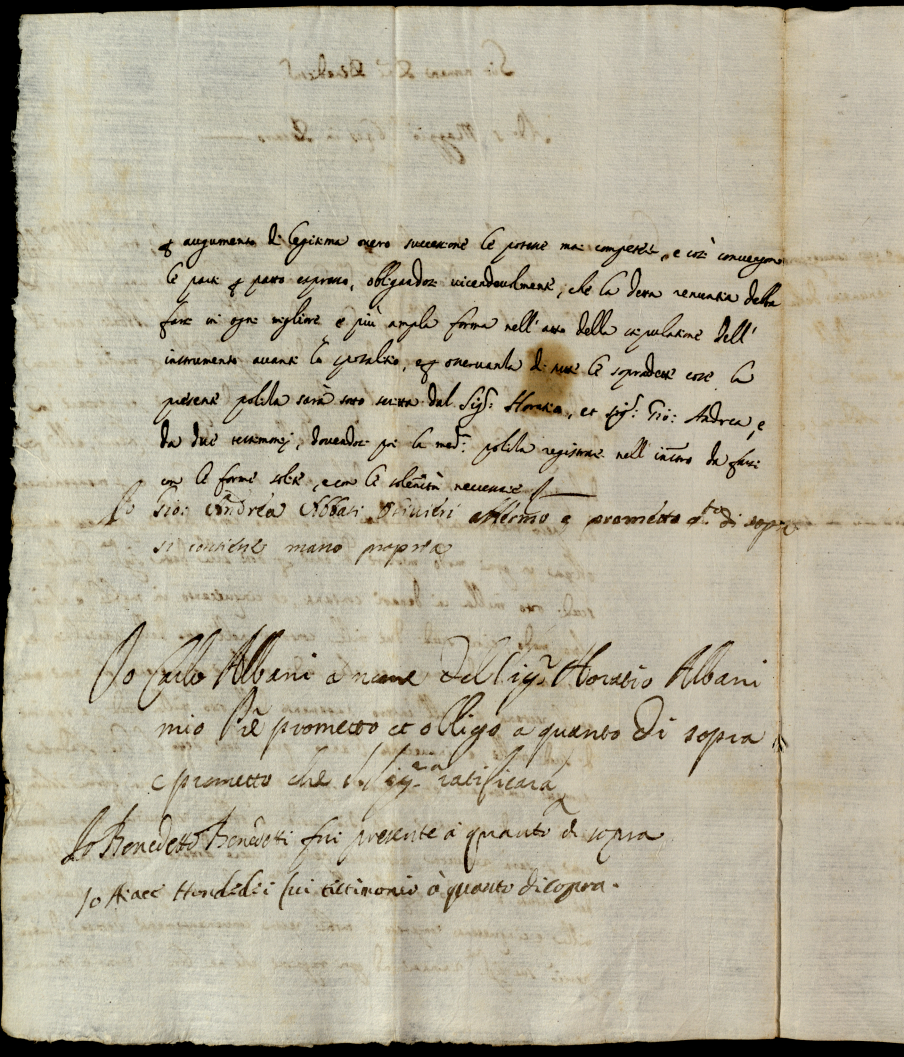 ꝑ augumento di legitima overo successione le potesse mai competere, e così convengono
le parti ꝑ patto espresso, obligandosi vicendevolmente, che la detta renuntia debba
farsi in ogni migliore e più ampla forma nell'atto della stipulatione dell'
instrumento avanti lo sposalitio, e ꝑ osservanza di tutte le sopradette cose la
presente poliza sarà sotto scritta dal Sigr: Horatio, et Sigr: Gio: Andrea, e
da due testimonij, dovendosi poi la medma: poliza registrare nell'instro da farsi
con le forme solite, e con le solennità necessarie
Io Gio: Andrea Abbati Olivieri affermo e prometto qto di sopra
si contiene mano propria
Io Carlo Albani a nome del Sigr Horatio Albani
mio Pre prometto et obligo a quanto di sopra
e prometto che il Sigr ratificarà
Io Benedetto Benedetti fui presente a quanto di sopra
Io fui testimonio à quanto di sopra.